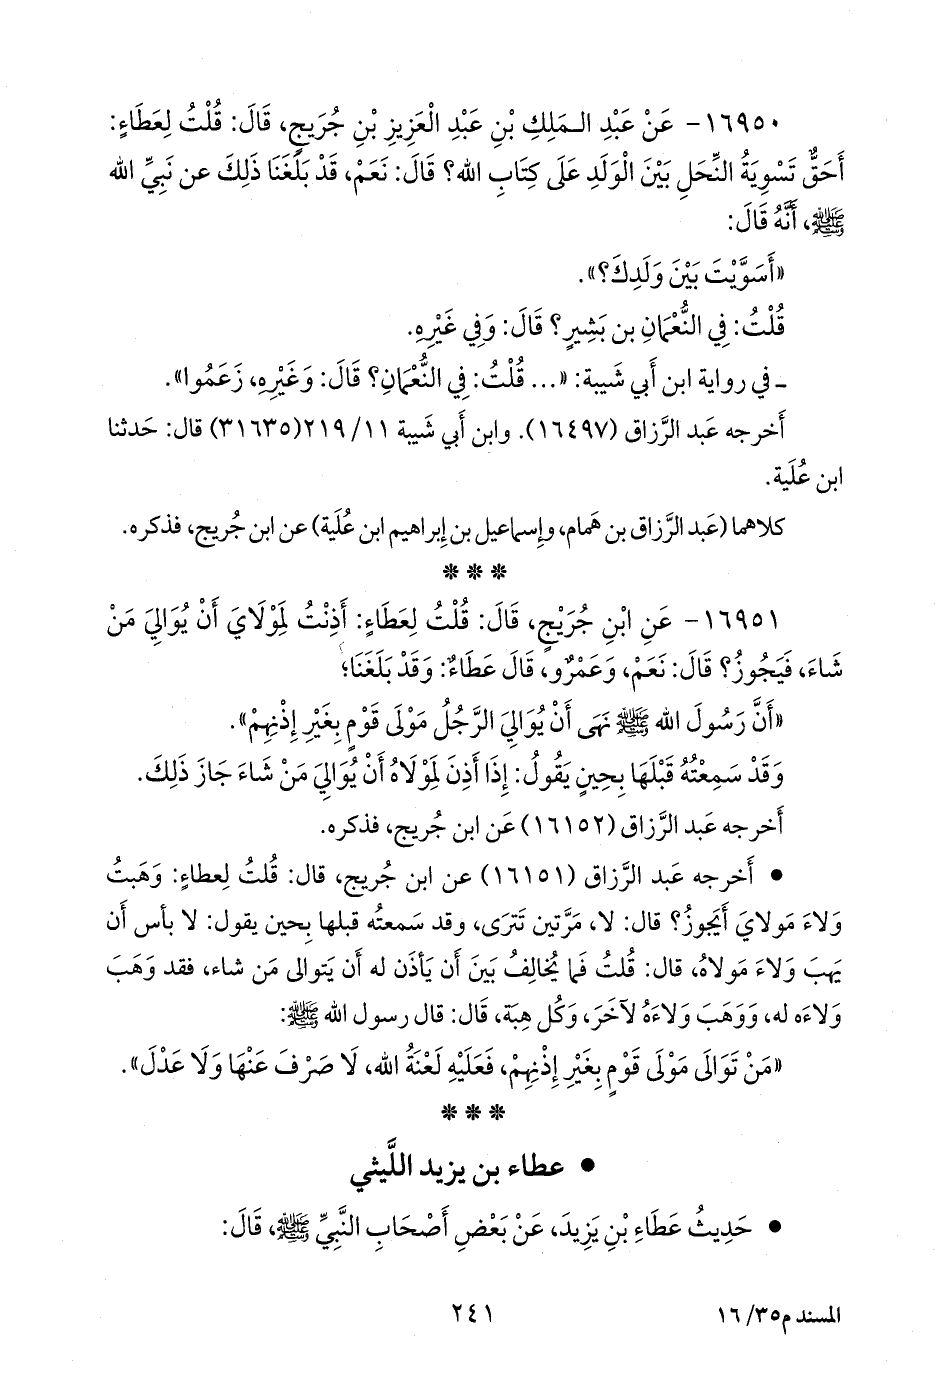 ١٦٩٥٠- عَنْ عَبْدِ الـمَلِكِ بْنِ عَبْدِ الْعَزِيزِ بْنِ جُرَيجٍ، قَالَ: قُلْتُ لِعَطَاءٍ:
أَحَقٌّ تَسْوِيَةُ النِّحَلِ بَيْنَ الْوَلَدِ عَلَى كِتَابِ الله؟ قَالَ: نَعَمْ، قَدْ بَلَغَنَا ذَلِكَ عن نَبِيِّ الله
ﷺ، أَنَّهُ قَالَ:
«أَسَوَّيْتَ بَيْنَ وَلَدِكَ؟».
قُلْتُ: فِي النُّعْمَانِ بن بَشِيرٍ؟ قَالَ: وَفِي غَيْرِهِ.
ـ في رواية ابن أَبي شَيبة: «... قُلْتُ: فِي النُّعْمَانِ؟ قَالَ: وَغَيْرِهِ، زَعَمُوا».
أَخرجه عَبد الرَّزاق (١٦٤٩٧). وابن أَبي شَيبة ٢١٩/١١(٣١٦٣٥) قال: حَدثنا
ابن عُلَية.
كلاهما (عَبد الرَّزاق بن هَمام، وإِسماعيل بن إِبراهيم ابن عُلَية) عن ابن جُريج، فذكره.
* * *
١٦٩٥١- عَنِ ابْنِ جُرَيْجٍ، قَالَ: قُلْتُ لِعَطَاءٍ: أَذِنْتُ لِمَوْلَايَ أَنْ يُوَالِيَ مَنْ
شَاءَ، فَيَجُوزُ؟ قَالَ: نَعَمْ، وَعَمْرٌو، قَالَ عَطَاءٌ: وَقَدْ بَلَغَنَا؛
«أَنَّ رَسُولَ الله ﷺ نَهَى أَنْ يُوَالِيَ الرَّجُلُ مَوْلَى قَوْمٍ بِغَيْرِ إِذْنِهِمْ».
وَقَدْ سَمِعْتُهُ قَبْلَهَا بِحِينٍ يَقُولُ: إِذَا أَذِنَ لِمَوْلَاهُ أَنْ يُوَالِيَ مَنْ شَاءَ جَازَ ذَلِكَ.
أَخرجه عَبد الرَّزاق (١٦١٥٢) عَن ابن جُريج، فذكره.
• أَخرجه عَبد الرَّزاق (١٦١٥١) عن ابن جُريج، قال: قُلتُ لِعطاءٍ: وَهَبتُ
وَلاءَ مَولايَ أَيَجوزُ؟ قال: لا، مَرَّتين تَترَى، وقد سَمعتُه قبلها بِحين يقول: لا بأس أَن
يَهبَ وَلاءَ مَولاهُ، قال: قُلتُ فَما يُخالِفُ بَينَ أَن يَأذَن له أَن يَتوالى مَن شاء، فقد وَهَبَ
وَلاءَه له، وَوَهَبَ وَلاءَهُ لآخَرَ، وَكُل هِبَة، قَال: قال رسول الله ﷺ:
«مَنْ تَوَالَى مَوْلَى قَوْمٍ بِغَيْرِ إِذْنِهِمْ، فَعَلَيْهِ لَعْنَةُ الله، لَا صَرْفَ عَنْهَا وَلَا عَدْلَ».
* * *
• عطاء بن يزيد اللَّيثي
• حَدِيثُ عَطَاءِ بْنِ يَزِيدَ، عَنْ بَعْضِ أَصْحَابِ النَّبِيِّ ﷺ، قَالَ:
المسند م٣٥/ ١٦
٢٤١